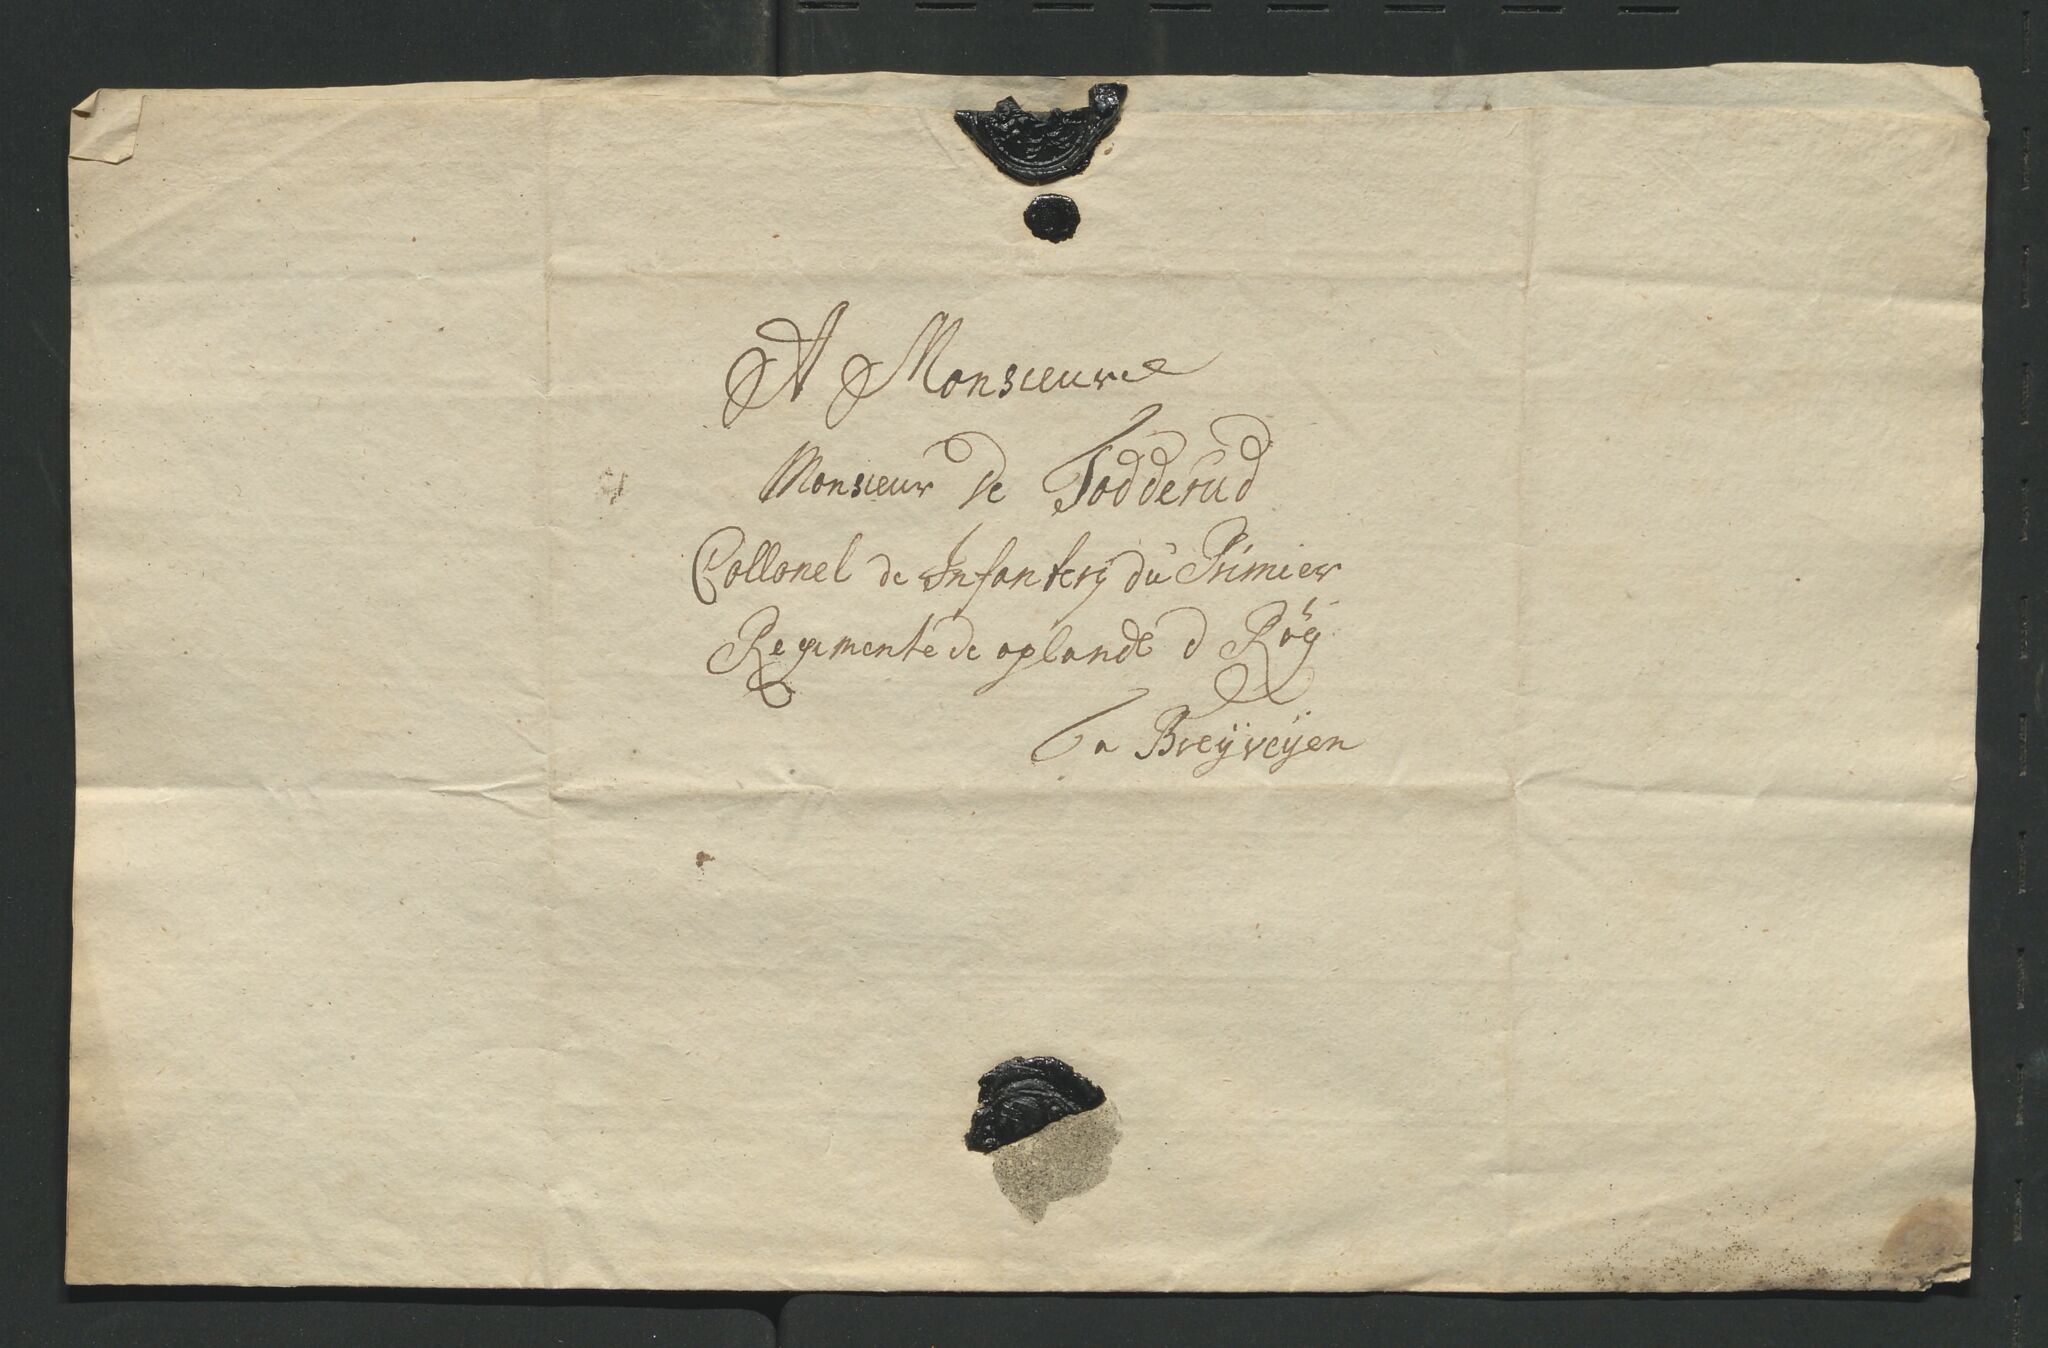 A Monsieur
Monsieur de Todderud
Collonel de Infantery du Primier
Regimente de oplande d Röÿ
a Breÿveÿen